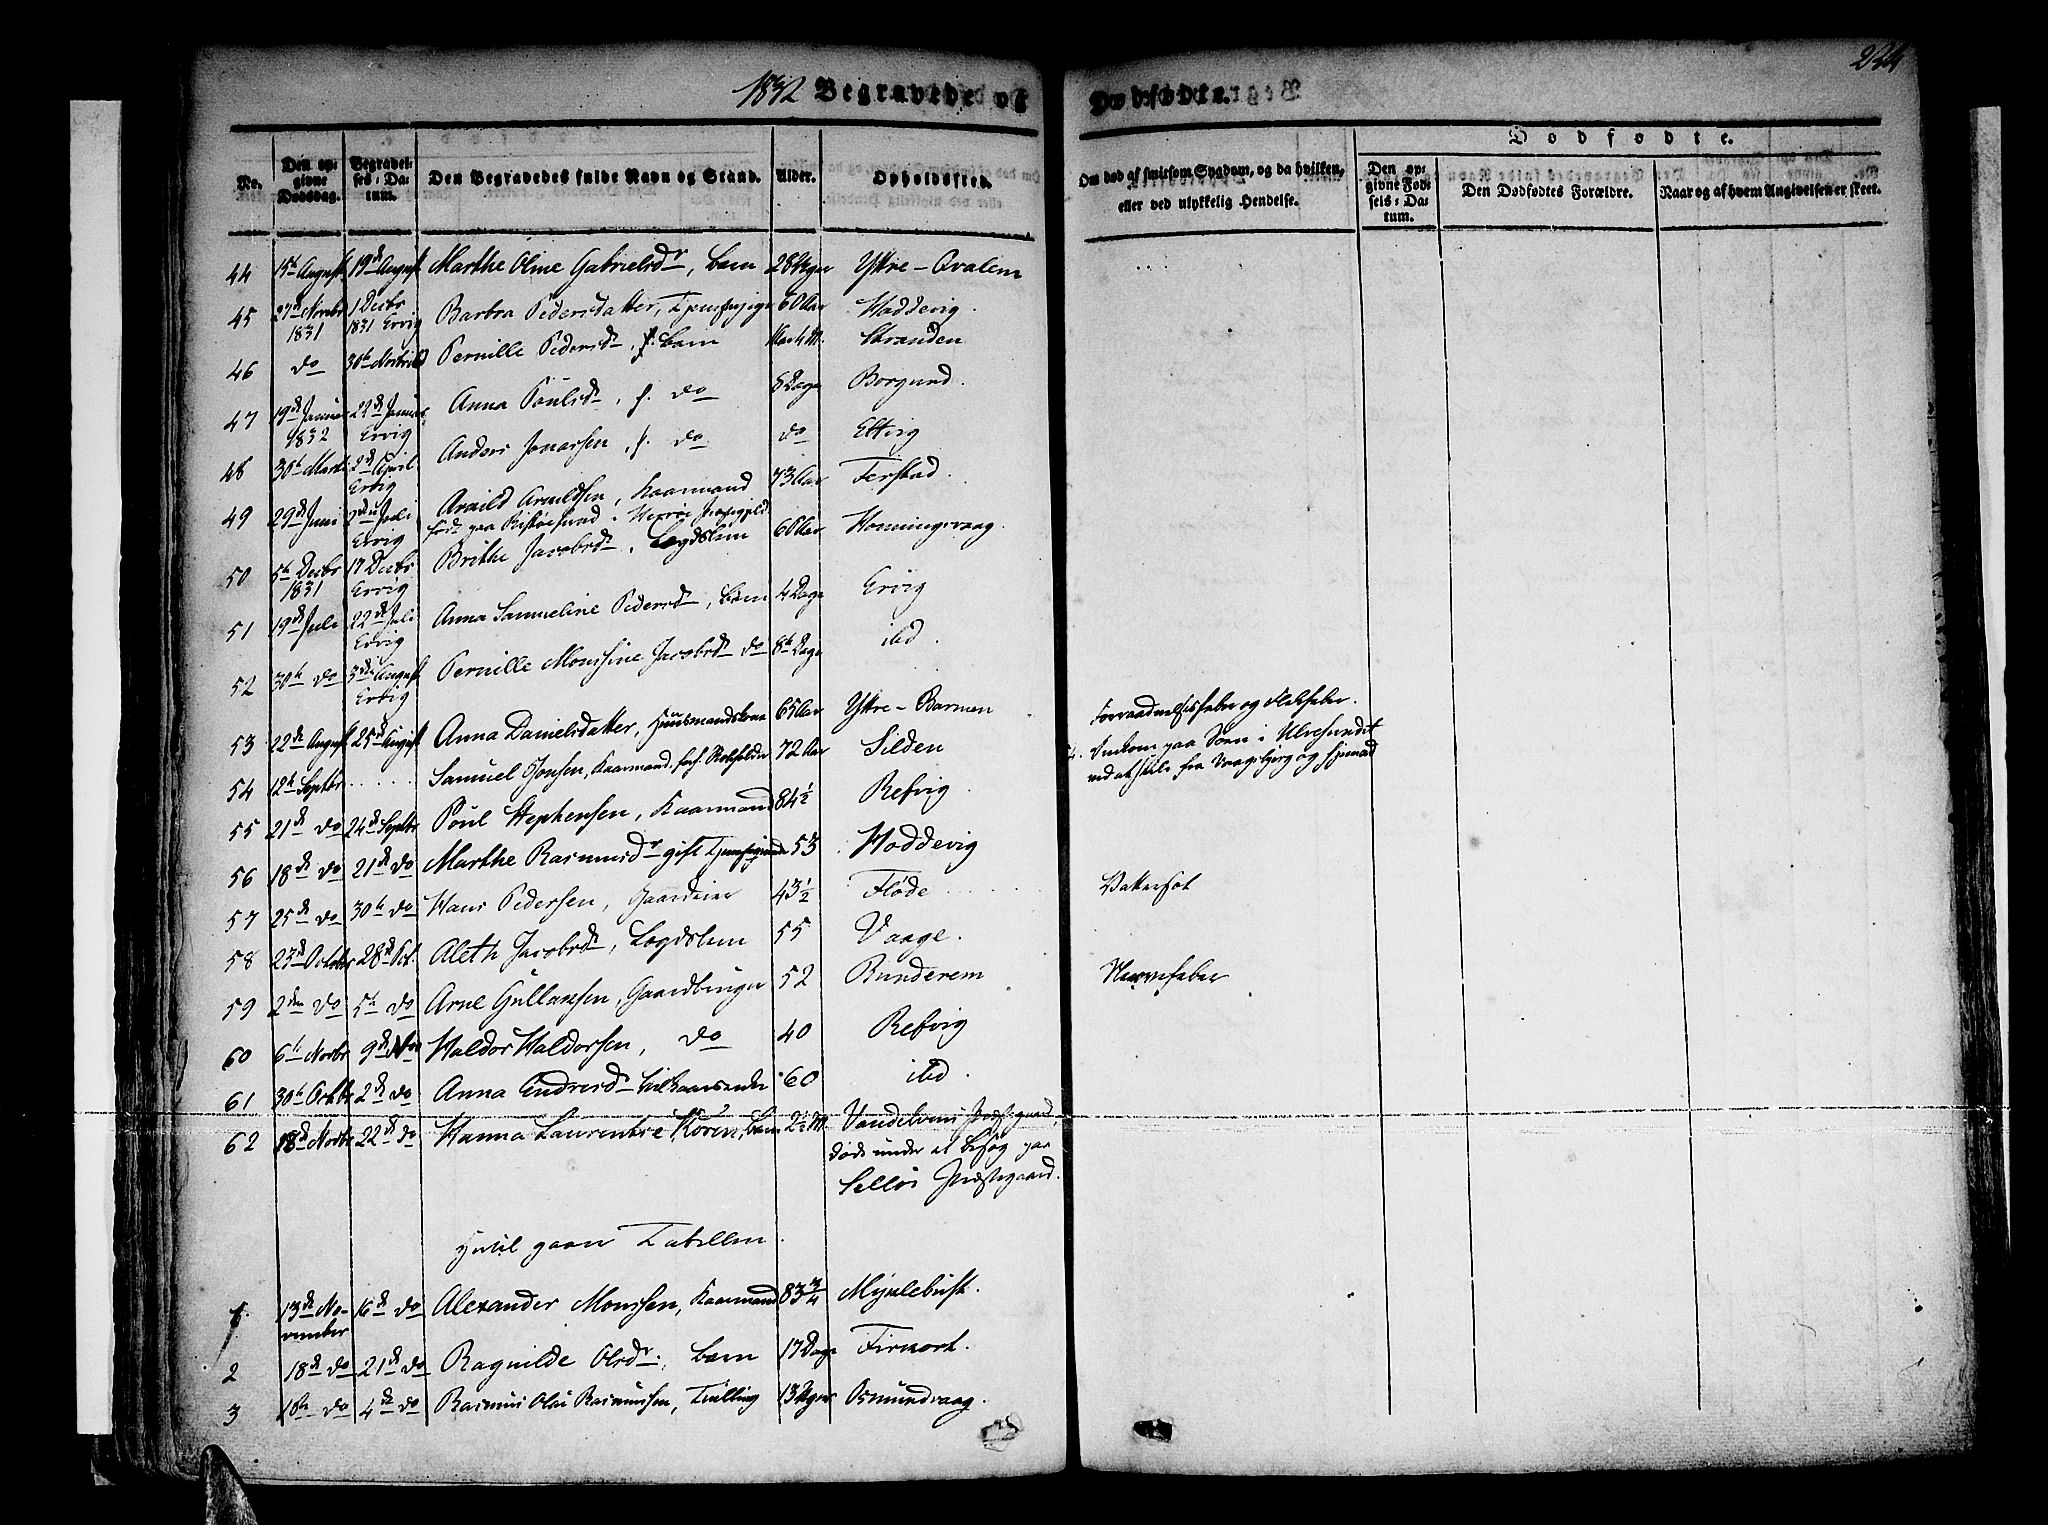 234
1832 Begravede og Dødfødte.
Dødfødte.
No. Den opgivne Dødsdag. Begravelses-Datum. Den Begravedes fulde Navn og Stand. Alder. Opholdssted. Om død af smitsom Sygdom, og da hvilken, eller ved ulykkelig Hendelse. Den opgivne Fødsels-Datum. Den Dødfødtes Forældre. Naar og af hvem Angivelsen er skeet.
44 15de August 19de August Marthe Oline Gabrielsdr, barn 28 Uger Yttre-Qvalem
45 27de Novbr 1831 1 Decbr 1831 Ervig Barbra Pedersdatter, 60 Aar Hoddevig
46 do 30te Pernille Pedersd., f. barn Stranden
47 19de Januar 1832 22de Januar Ervig Anna Poulsd., f. do Dage Borgund.
48 30te Marts 2de April Ervig Anders Jonassen, f. do do Ettvig
49 29de Juni 2den Juli Ervig Arnild Arnildsen, Kaarmand 73 Aar Ferstad.
fød paa i Herrøe Præstegjeld
50 5te Decbr 1831 17 Decbr Ervig Brithe Jacobsd., Lægdslem 60 Aar Honningsvaag.
51 19de Juli 22de Juli Ervig Anna Samueline Pedersd., barn 4 Dage Ervig
52 30te do 3die August Ervig Pernille Monsine Jacobsd. do 8te Dage ibd.
53 22de August 25de August Anna Danielsdatter, Huusmandskone 65 Aar Yttre-Barmen Forraadnelsesfeber og
54 12te Septbr ..... Samuel Jonsen, Kaarmand, 72 Aar Silden Omkom paa Søen i Ulvesundet
ved at seile fra og hjemad
55 21de do 24de Septbr Poul Stephensen, Kaarmand 84½ Refvig
56 18de do 21de do Marthe Rasmusdr gift 53 Hoddevig
57 25de do 30te do Hans Pedersen, Gaardeier 43½ Fløde Vattersot
58 23de Octobr 28de Oct. Aleth Jacobsd., Lægdslem 55 Vaage.
59 2den do 5te do Arne Gullaksen, Gaardbruger 52 Bunderem Nervefeber
60 6te Novbr 9de Nov Haldor Haldorsen, do 40 Refvig
61 30te Octbr 2de do Anna Endresd. 60 ibd.
62 18de Novbr 22de do Hanna Laurentze Koren, barn 2½ M. Præstegaard,
døde under et besøg paa
Selløe Præstegaard.
Hertil gaaer Tabellen.
1. 13de November 16de do Alexander Monssen, Kaarmand 83¾ Myklebust.
2 18de do 21de do Ragnilde Olsdr., barn 17 Dage
3 10te do 4de do Rasmus Olai Rasmussen, Tvilling 13 Uger Osmundvaag.